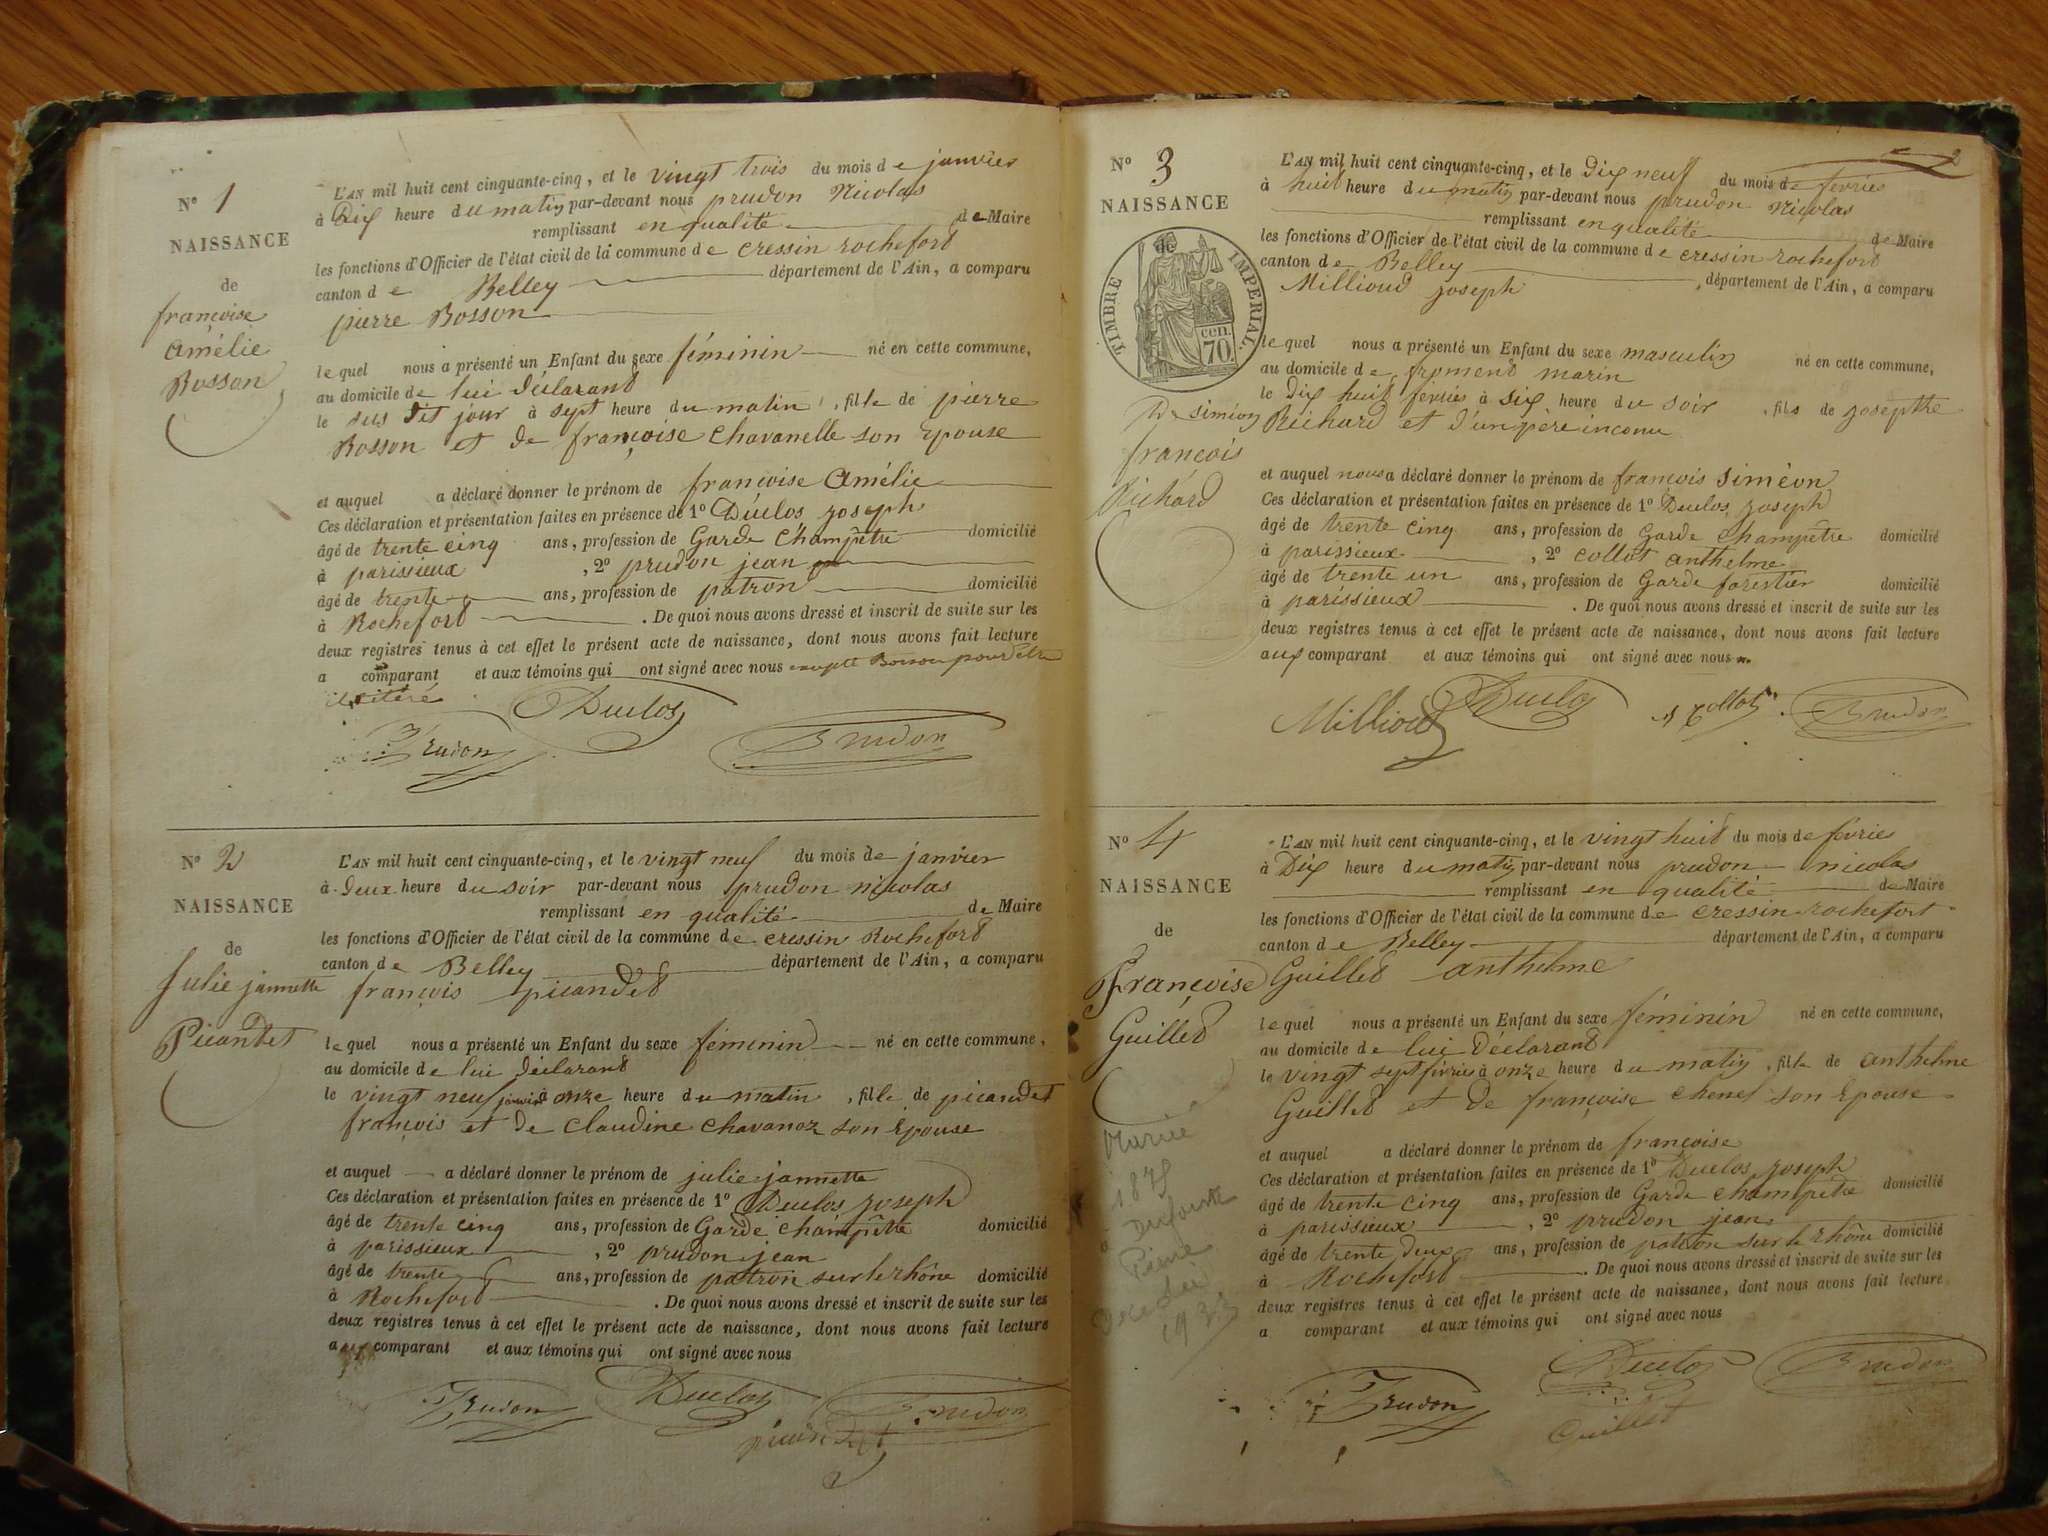 N° 1
NAISSANCE
de
françoise
Amélie
Bosson
L'AN mil huit cent cinquante-cinq, et le vingt trois du mois de janvier
à Dix heure du matin par-devant nous prudon Nicolas
remplissant en qualité de Maire
les fonctions d'Officier de l'état civil de la commune de cressin rochefort
canton de Belley département de l'Ain, a comparu
pierre Bosson
lequel nous a présenté un Enfant du sexe féminin né en cette commune,
au domicile de lui déclarant
le sus dit jour à sept heure du matin, fille de pierre
Bosson et de françoise Chavanelle son Epouse
et auquel a déclaré donner le prénom de françoise Amélie
Ces déclaration et présentation faites en présence de 1° Duclos joseph
âgé de trente cinq ans, profession de Garde Champêtre domicilié
à parissieux , 2° prudon jean
âgé de trente ans, profession de patron domicilié
à Rochefort . De quoi nous avons dressé et inscrit de suite sur les
deux registres tenus à cet effet le présent acte de naissance, dont nous avons fait lecture
a comparant et aux témoins qui ont signé avec nous Bosson pour être
Duclos
Prudon
Prudon
N° 2
NAISSANCE
de
Julie jannette
Picandet
L'AN mil huit cent cinquante-cinq, et le vingt neuf du mois de janvier
à deux heure du soir par-devant nous prudon nicolas
remplissant en qualité de Maire
les fonctions d'Officier de l'état civil de la commune de cressin Rochefort
canton de Belley département de l'Ain, a comparu
françois picandet
lequel nous a présenté un Enfant du sexe féminin né en cette commune,
au domicile de lui déclarant
le vingt neuf janvier à onze heure du matin, fille de picandet
françois et de claudine chavanoz son Epouse
et auquel a déclaré donner le prénom de julie jannette
Ces déclaration et présentation faites en présence de 1° Duclos joseph
âgé de trente cinq ans, profession de Garde Champêtre domicilié
à parissieux , 2° prudon jean
âgé de trente ans, profession de patron sur le rhône domicilié
à Rochefort . De quoi nous avons dressé et inscrit de suite sur les
deux registres tenus à cet effet le présent acte de naissance, dont nous avons fait lecture
aux comparant et aux témoins qui ont signé avec nous
Prudon Duclos Prudon
picandet
2
N° 3
NAISSANCE
TIMBRE IMPERIAL
70 cen.
De siméon
françois
Richard
L'AN mil huit cent cinquante-cinq, et le Dix neuf du mois de février
à huit heure du matin par-devant nous prudon Nicolas
remplissant en qualité de Maire
les fonctions d'Officier de l'état civil de la commune de cressin rochefort
canton de Belley département de l'Ain, a comparu
Millioud joseph
lequel nous a présenté un Enfant du sexe masculin né en cette commune,
au domicile de froment marin
le Dix huit février à six heure du soir, fils de josepthe
Richard et d'un père inconu
et auquel nous a déclaré donner le prénom de françois Siméon
Ces déclaration et présentation faites en présence de 1° Duclos joseph
âgé de trente cinq ans, profession de Garde champêtre domicilié
à parissieux , 2° collot anthelme
âgé de trente un ans, profession de Garde forestier domicilié
à parissieux . De quoi nous avons dressé et inscrit de suite sur les
deux registres tenus à cet effet le présent acte de naissance, dont nous avons fait lecture
aux comparant et aux témoins qui ont signé avec nous
Millioud Duclos Collot Prudon
N° 4
NAISSANCE
de
Françoise
Guilled
Mariée
Pierre
L'AN mil huit cent cinquante-cinq, et le vingt huit du mois de février
à Dix heure du matin par-devant nous prudon nicolas
remplissant en qualité de Maire
les fonctions d'Officier de l'état civil de la commune de cressin rochefort
canton de Belley département de l'Ain, a comparu
Guilled anthelme
lequel nous a présenté un Enfant du sexe féminin né en cette commune,
au domicile de lui Déclarant
le vingt sept février à onze heure du matin, fille de anthelme
Guilled et de françoise chenel son Epouse
et auquel a déclaré donner le prénom de françoise
Ces déclaration et présentation faites en présence de 1° Duclos joseph
âgé de trente cinq ans, profession de Garde champêtre domicilié
à parissieux , 2° prudon jean
âgé de trente deux ans, profession de patron sur le rhône domicilié
à Rochefort . De quoi nous avons dressé et inscrit de suite sur les
deux registres tenus à cet effet le présent acte de naissance, dont nous avons fait lecture
a comparant et aux témoins qui ont signé avec nous
Prudon Duclos Prudon
Guillet